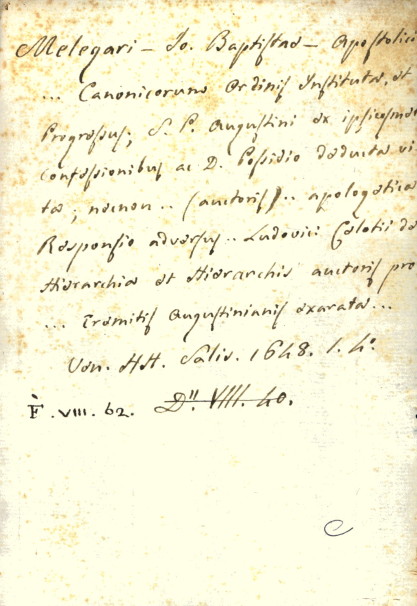 Melegari – Io. Baptistae – Apostolici
... Canonicorum Ordinis Instituta, et
Progressus; S. P. Augustini ex ipsiusmet
confessionibus ac D. Possidio deducta vi
ta; necnon .. (auctoris) .. apologetica
Responsio adversus .. Ludovici Celotii de
Hierarchia et Hierarchis auctoris pro
... Eremitis Augustinianis exarata ...
Ven. HH. Salis. 1648. 1. 4°
F . VIII . 62. D" VIII. 40.
C